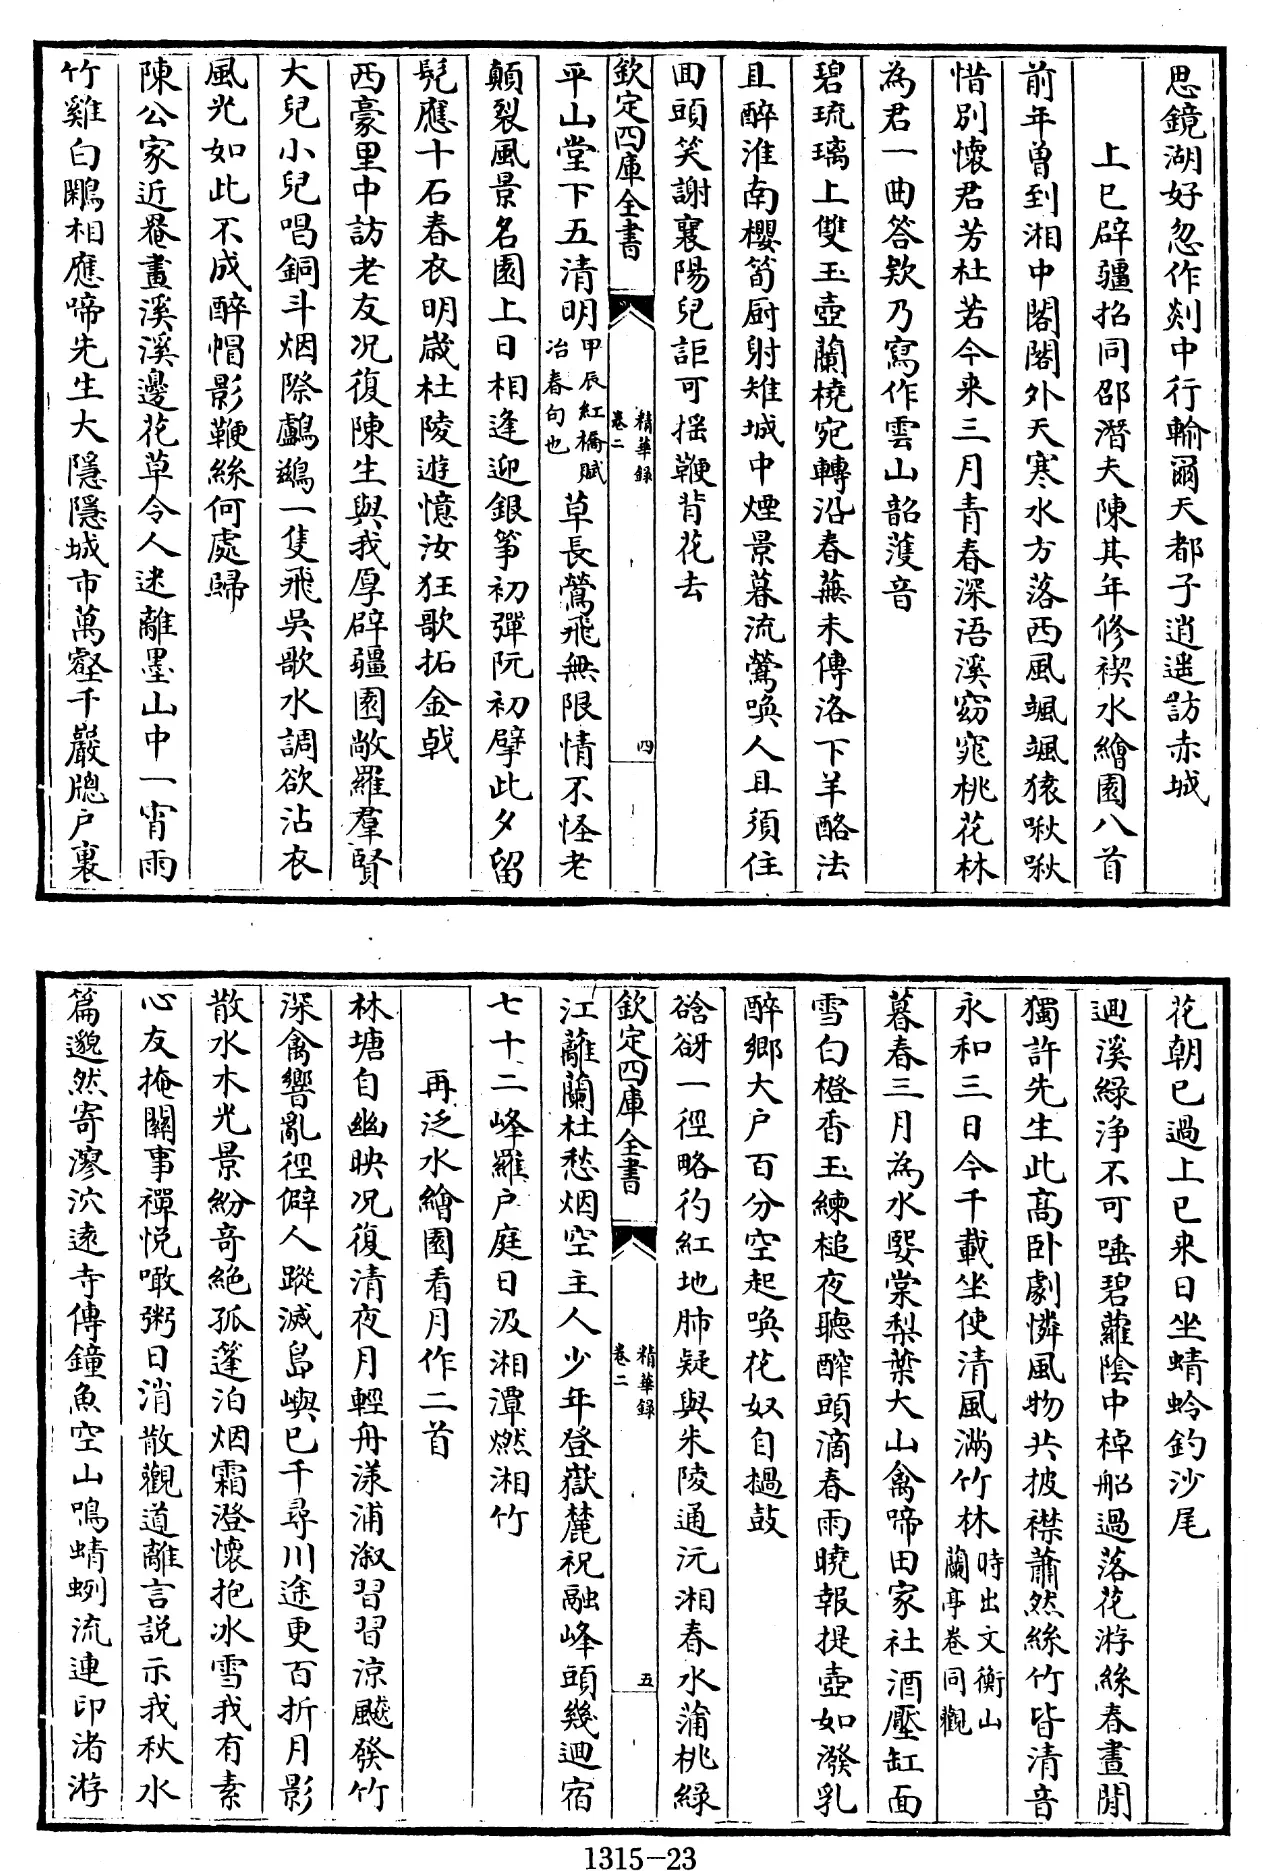 思鏡湖好忽作剡中行輸爾天都子逍遙訪赤城
上巳辟疆招同邵潛夫陳其年修禊水繪園八首
前年曾到湘中閣閣外天寒水方落西風颯颯猿啾啾
惜別懷君芳杜若今来三月青春深浯溪窈窕桃花林
為君一曲答欸乃寫作雲山韶濩音
碧琉璃上雙玉壺蘭橈宛轉沿春蕪未傳洛下羊酪法
且醉淮南櫻筍厨射雉城中煙景暮流鶯喚人且須住
回頭笑謝襄陽兒詎可揺鞭背花去
欽定四庫全書
精華録
卷二
四
平山堂下五清明
甲辰紅橋賦
冶春句也
草長鶯飛無限情不怪老
顛裂風景名園上日相逢迎銀筝初彈阮初擘此夕留
髠應十石春衣明歲杜陵遊憶汝狂歌拓金戟
西豪里中訪老友况復陳生與我厚辟疆園敞羅羣賢
大兒小兒唱銅斗烟際鸕鷀一隻飛吳歌水調欲沾衣
風光如此不成醉帽影鞭絲何處歸
陳公家近罨畫溪溪邊花草令人迷離墨山中一宵雨
竹雞白鷴相應啼先生大隱隱城市萬壑千巖牕户裏
花朝已過上巳来日坐蜻蛉釣沙尾
迴溪緑浄不可唾碧蘿陰中棹船過落花游絲春晝閒
獨許先生此髙卧劇憐風物共披襟蕭然絲竹皆清音
永和三日今千載坐使清風滿竹林
時出文衡山
蘭亭卷同觀
暮春三月為水嬉棠梨葉大山禽啼田家社酒壓缸面
雪白橙香玉練槌夜聴醡頭滴春雨曉報提壺如潑乳
醉鄉大户百分空起喚花奴自撾鼓
谽谺一徑略彴紅地肺疑與朱陵通沅湘春水蒲桃緑
欽定四庫全書
精華録
卷二
五
江蘺蘭杜愁烟空主人少年登嶽麓祝融峰頭幾迴宿
七十二峰羅户庭日汲湘潭燃湘竹
再泛水繪園看月作二首
林塘自幽映况復清夜月輕舟漾浦溆習習涼飇發竹
深禽響亂徑僻人蹤滅島嶼已千尋川途更百折月影
散水木光景紛竒絶孤篷泊烟霜澄懷抱冰雪我有素
心友掩關事禪悦噉粥日消散觀道離言説示我秋水
篇邈然寄漻泬遠寺傳鐘魚空山鳴蜻蛚流連印渚游
1315-23